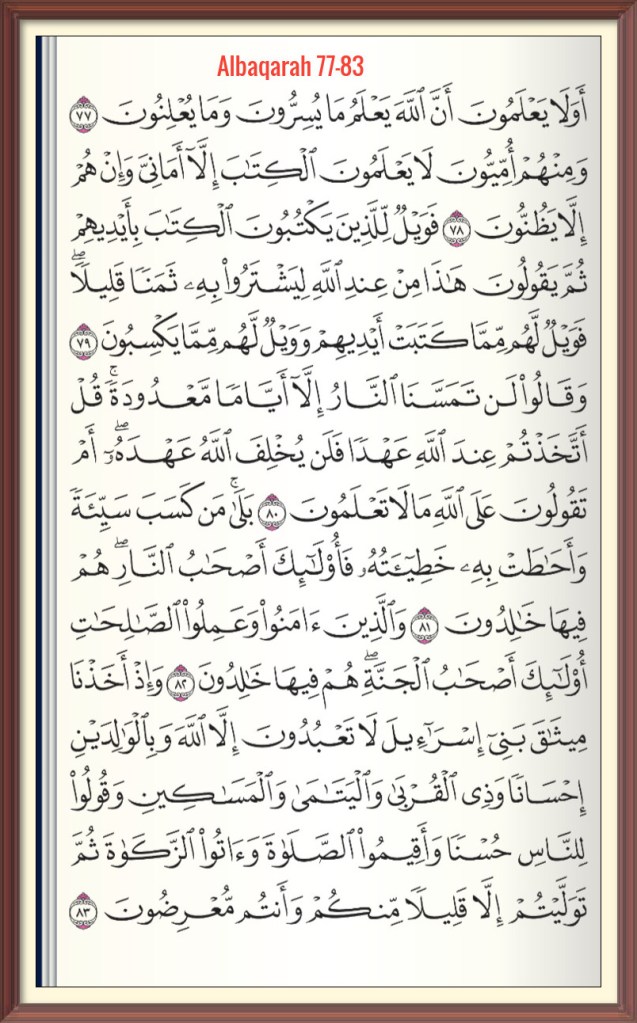 Albaqarah 77-83
أَوَلَا يَعْلَمُونَ أَنَّ ٱللَّهَ يَعْلَمُ مَا يُسِرُّونَ وَمَا يُعْلِنُونَ ٧٧
وَمِنْهُمْ أُمِّيُّونَ لَا يَعْلَمُونَ ٱلْكِتَٰبَ إِلَّآ أَمَانِىَّ وَإِنْ هُمْ
إِلَّا يَظُنُّونَ ٧٨ فَوَيْلٌ لِّلَّذِينَ يَكْتُبُونَ ٱلْكِتَٰبَ بِأَيْدِيهِمْ
ثُمَّ يَقُولُونَ هَٰذَا مِنْ عِندِ ٱللَّهِ لِيَشْتَرُوا۟ بِهِۦ ثَمَنًا قَلِيلًا ۖ
فَوَيْلٌ لَّهُم مِّمَّا كَتَبَتْ أَيْدِيهِمْ وَوَيْلٌ لَّهُم مِّمَّا يَكْسِبُونَ ٧٩
وَقَالُوا۟ لَن تَمَسَّنَا ٱلنَّارُ إِلَّآ أَيَّامًا مَّعْدُودَةً ۚ قُلْ
أَتَّخَذْتُمْ عِندَ ٱللَّهِ عَهْدًا فَلَن يُخْلِفَ ٱللَّهُ عَهْدَهُۥٓ ۖ أَمْ
تَقُولُونَ عَلَى ٱللَّهِ مَا لَا تَعْلَمُونَ ٨٠ بَلَىٰ ۚ مَن كَسَبَ سَيِّئَةً
وَأَحَٰطَتْ بِهِۦ خَطِيٓـَٔتُهُۥ فَأُو۟لَٰٓئِكَ أَصْحَٰبُ ٱلنَّارِ ۖ هُمْ
فِيهَا خَٰلِدُونَ ٨١ وَٱلَّذِينَ ءَامَنُوا۟ وَعَمِلُوا۟ ٱلصَّٰلِحَٰتِ
أُو۟لَٰٓئِكَ أَصْحَٰبُ ٱلْجَنَّةِ ۖ هُمْ فِيهَا خَٰلِدُونَ ٨٢ وَإِذْ أَخَذْنَا
مِيثَٰقَ بَنِىٓ إِسْرَٰٓءِيلَ لَا تَعْبُدُونَ إِلَّا ٱللَّهَ وَبِٱلْوَٰلِدَيْنِ
إِحْسَانًا وَذِى ٱلْقُرْبَىٰ وَٱلْيَتَٰمَىٰ وَٱلْمَسَٰكِينِ وَقُولُوا۟
لِلنَّاسِ حُسْنًا وَأَقِيمُوا۟ ٱلصَّلَوٰةَ وَءَاتُوا۟ ٱلزَّكَوٰةَ ثُمَّ
تَوَلَّيْتُمْ إِلَّا قَلِيلًا مِّنكُمْ وَأَنتُم مُّعْرِضُونَ ٨٣